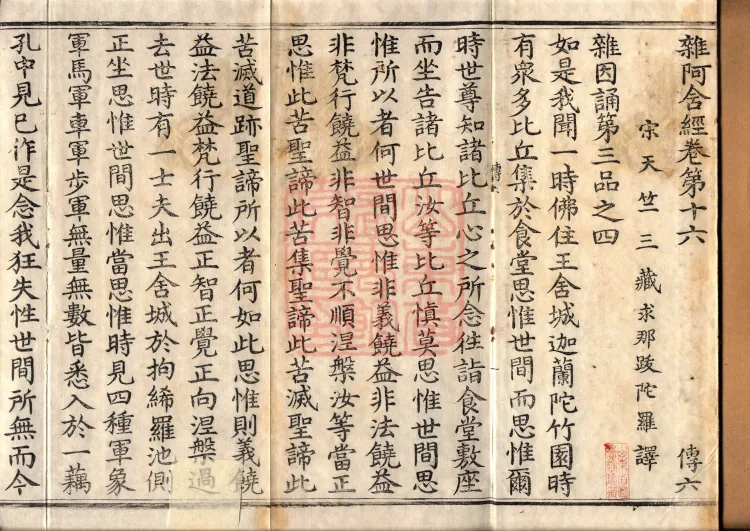 雜阿含經卷第十六
傳六
宋天竺三藏求那跋陀羅譯
雜因誦第三品之四
如是我聞一時佛住王舍城迦蘭陀竹園時
有衆多比丘集於食堂思惟世間而思惟爾
時世尊知諸比丘心之所念往詣食堂敷座
而坐告諸比丘汝等比丘愼莫思惟世間思
惟所以者何世間思惟非義饒益非法饒益
非梵行饒益非智非覺不順涅槃汝等當正
思惟此苦聖諦此苦集聖諦此苦滅聖諦此
苦滅道跡聖諦所以者何如此思惟則義饒
益法饒益梵行饒益正智正覺正向涅槃過
去世時有一士夫出王舍城於拘絺羅池側
正坐思惟世間思惟當思惟時見四種軍象
軍馬軍車軍步軍無量無數皆悉入於一藕
孔中見已作是念我狂失性世間所無而今